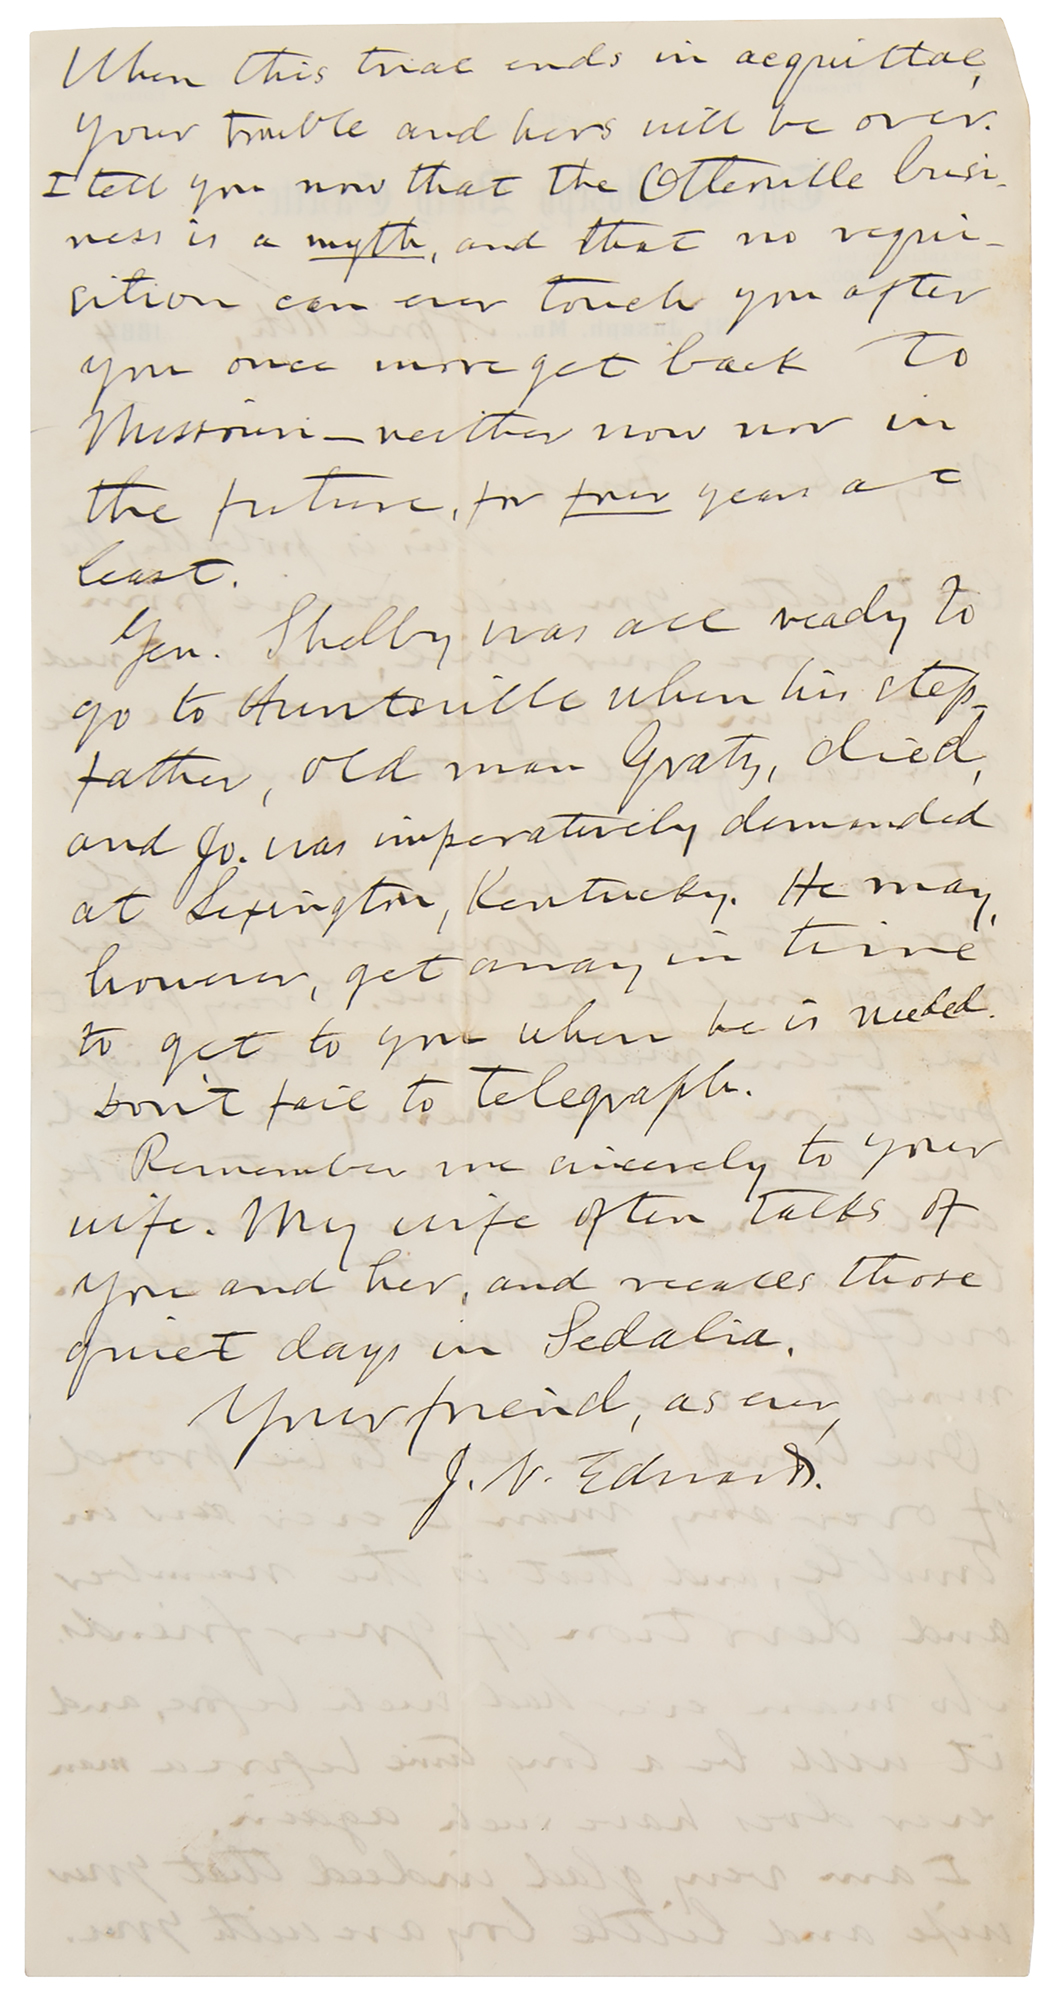 When this trial ends in acquittal,
your trouble and hers will be over.
I tell you now that the Otterville busi-
ness is a myth, and that no requi-
sition can ever touch you after
you once more get back to
Missouri—neither now nor in
the future, for four years at
least.
Gen. Shelby was all ready to
go to Huntsville when his step-
father, old man Gratz, died,
and Jo. was imperatively demanded
at Lexington, Kentucky. He may,
however, get away in time
to get to you when he is needed.
Don't fail to telegraph.
Remember me sincerely to your
wife. My wife often talks of
you and her, and recalls those
quiet days in Sedalia.
Your friend, as ever,
J. N. Edwards.